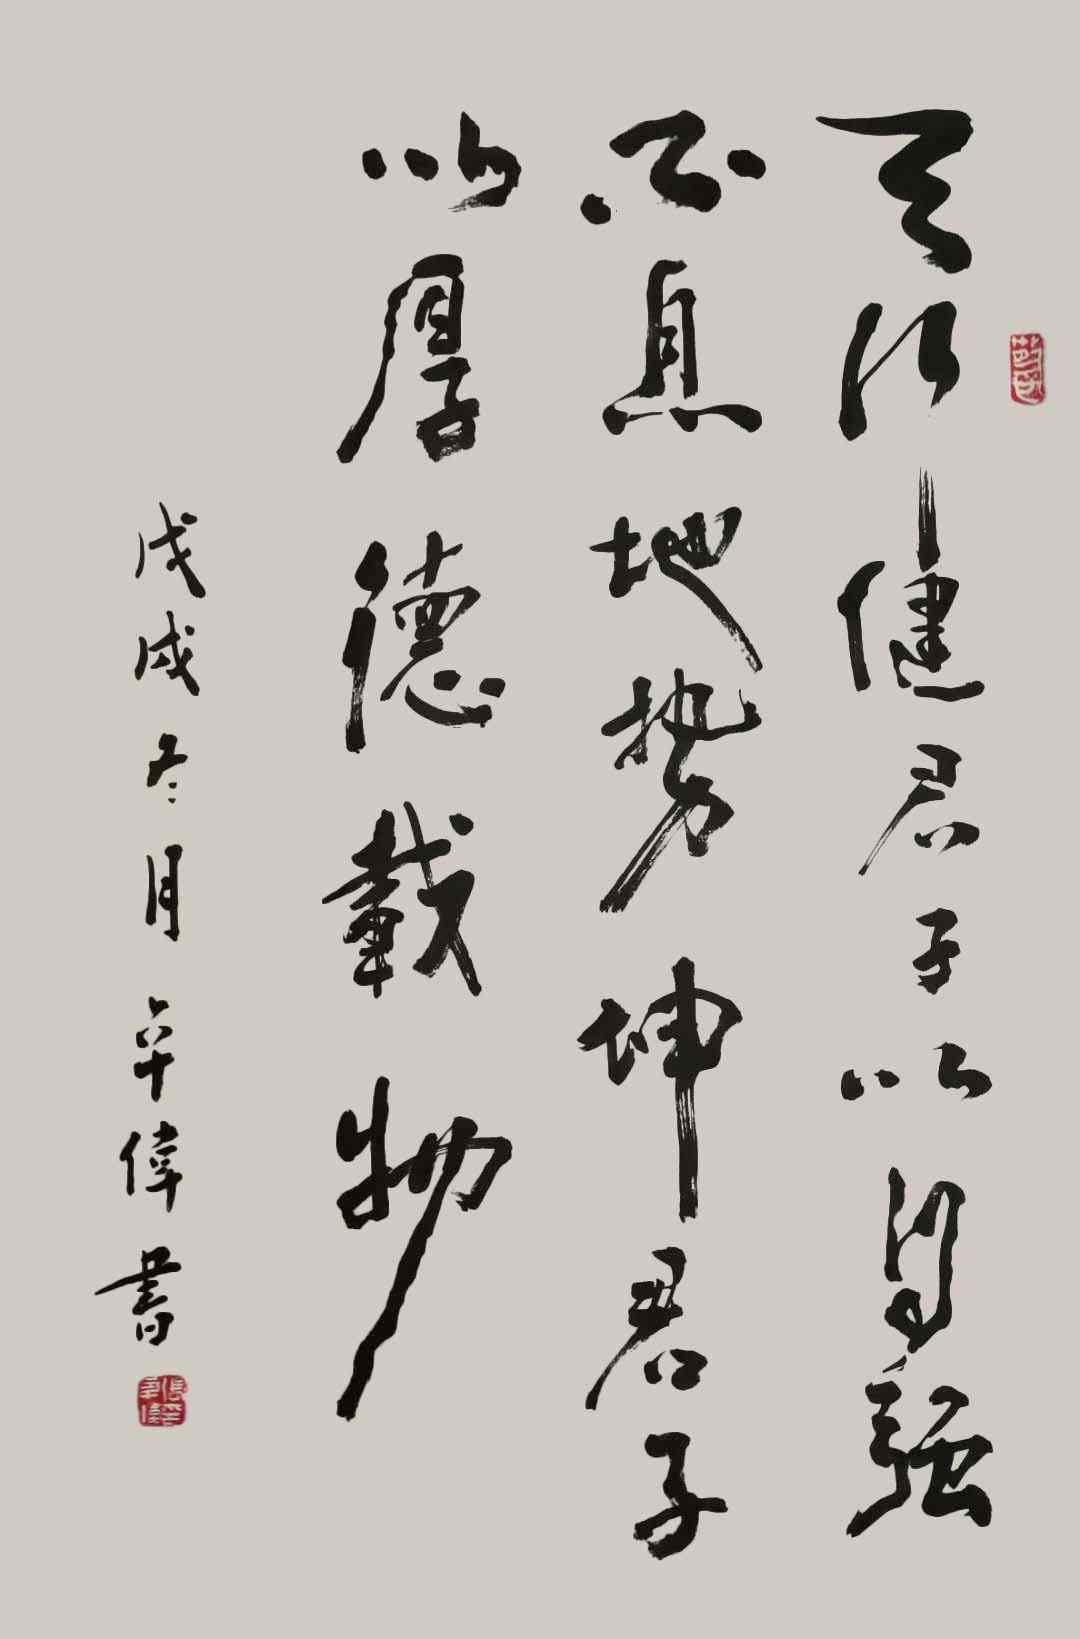 天行健君子以自强
不息地势坤君子
以厚德載物
戊戌冬月辛偉書